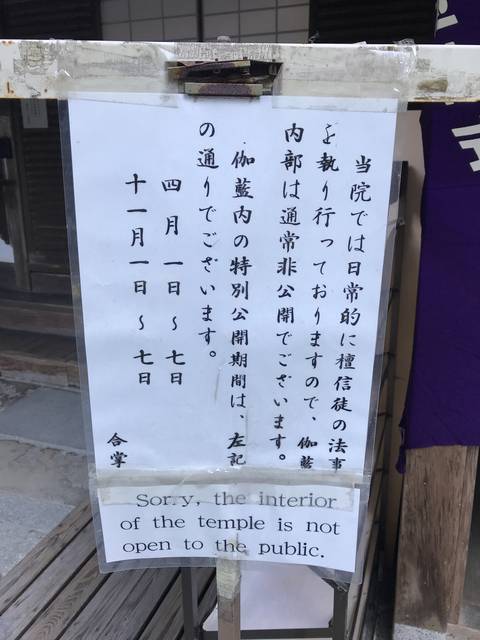 当院では日常的に檀信徒の法事
を執り行っておりますので、伽藍
内部は通常非公開でございます。
伽藍内の特別公開期間は、左記
の通りでございます。
四月一日～七日
十一月一日～七日
合掌
Sorry, the interior
of the temple is not
open to the public.